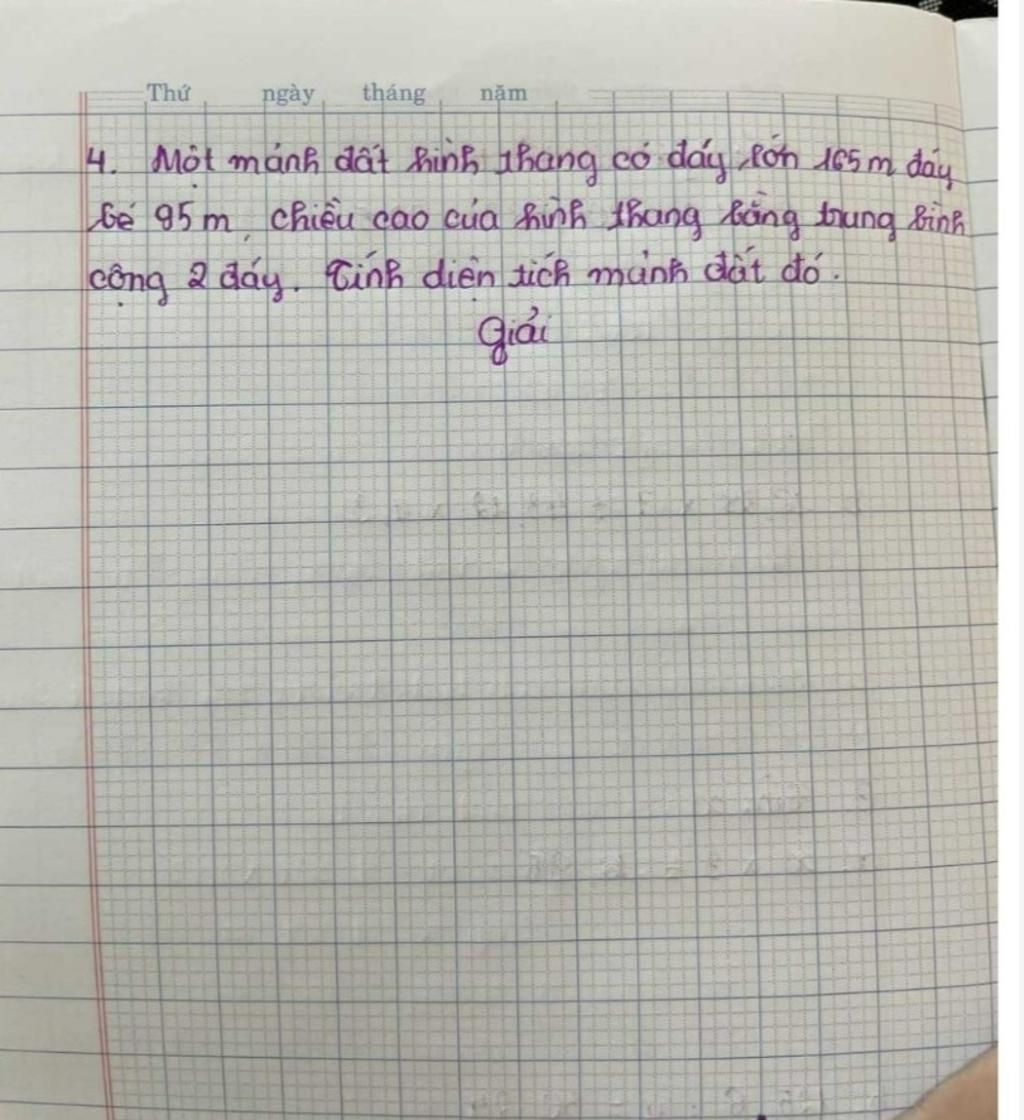 Thứ ngày tháng năm
4. Một mảnh đất hình thang có đáy lớn 165m đáy
bé 95m, chiều cao của hình thang bằng trung bình
cộng 2 đáy. Tính diện tích mảnh đất đó.
Giải